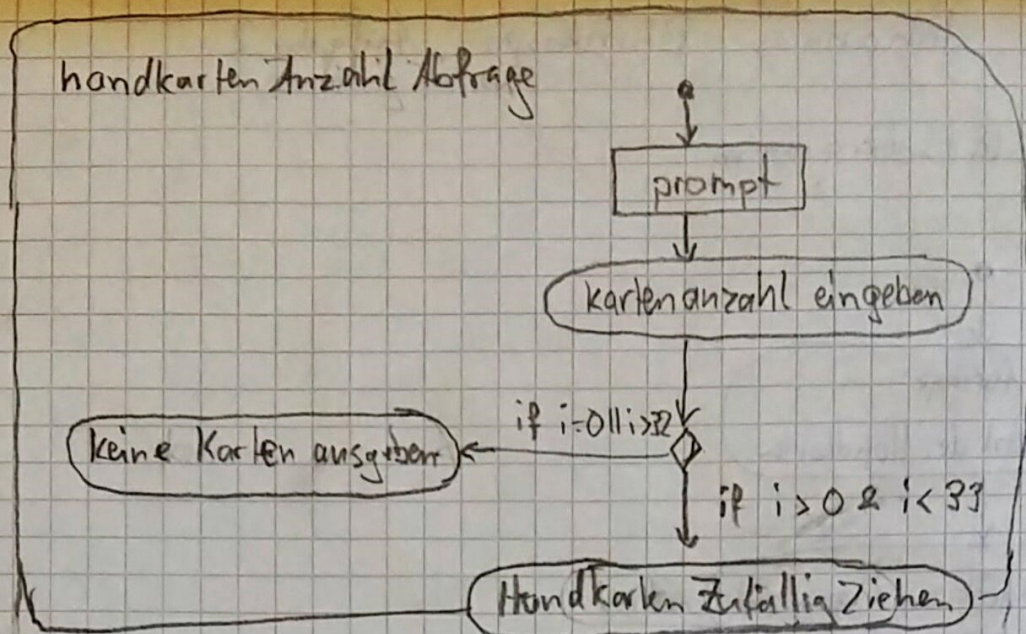 handkarten Anzahl Abfrage
prompt
kartenanzahl eingeben
if i=0||i>32
keine Karten ausgeben
if i>0 & i<33
Handkarten Zufällig Ziehen